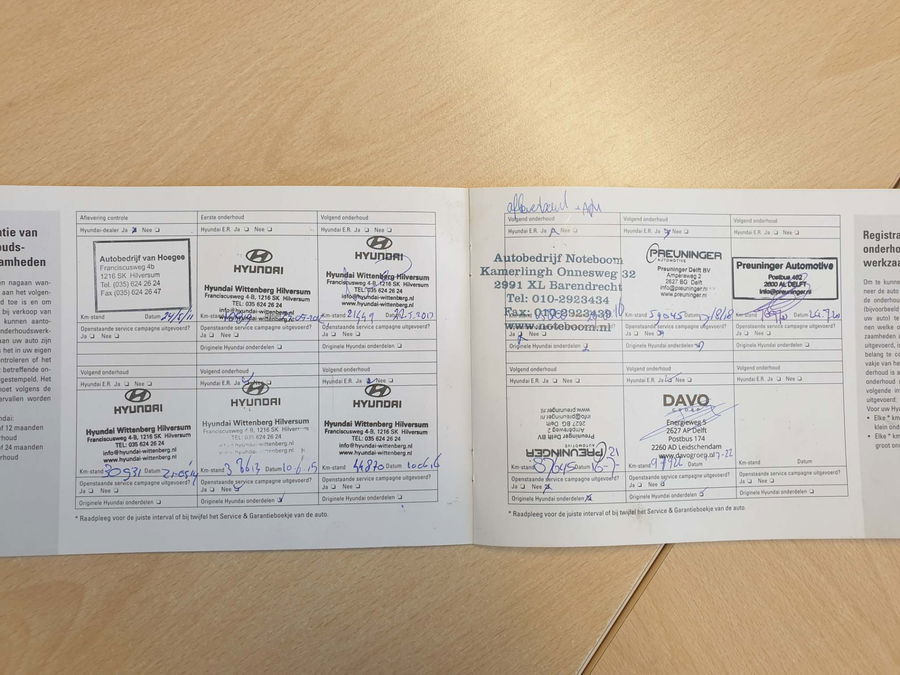 atie van
ouds-
aamheden
en nagaan wan-
aan het volgen-
d toe is en om
bij verkoop van
kunnen aanto-
onderhoudswerk-
an uw auto zijn
het in uw eigen
ntroleren of het
betreffende on-
gestempeld. Het
moet volgens de
ervallen worden
ndai:
of 12 maanden
rhoud
of 24 maanden
erhoud
Aflevering controle
Hyundai-dealer Ja Nee
Autobedrijf van Hoegee
Franciscusweg 4b
1216 SK Hilversum
Tel. (035) 624 26 24
Fax (035) 624 26 47
Km-stand Datum 24/5/11
Openstaande service campagne uitgevoerd?
Ja Nee
Eerste onderhoud
Hyundai E.R. Ja Nee
HYUNDAI
Hyundai Wittenberg Hilversum
Franciscusweg 4-B, 1216 SK Hilversum
TEL: 035 624 26 24
info@hyundai-wittenberg.nl
www.hyundai-wittenberg.nl
Km-stand
Openstaande service campagne uitgevoerd?
Ja Nee
Originele Hyundai onderdelen
Volgend onderhoud
Hyundai E.R. Ja Nee
HYUNDAI
Hyundai Wittenberg Hilversum
Franciscusweg 4-B, 1216 SK Hilversum
TEL: 035 624 26 24
info@hyundai-wittenberg.nl
www.hyundai-wittenberg.nl
Km-stand Datum
Openstaande service campagne uitgevoerd?
Ja Nee
Originele Hyundai onderdelen
Volgend onderhoud
Hyundai E.R. Ja Nee
HYUNDAI
Hyundai Wittenberg Hilversum
Franciscusweg 4-B, 1216 SK Hilversum
TEL: 035 624 26 24
info@hyundai-wittenberg.nl
www.hyundai-wittenberg.nl
Km-stand 30931 Datum
Openstaande service campagne uitgevoerd?
Ja Nee
Originele Hyundai onderdelen
Volgend onderhoud
Hyundai E.R. Ja Nee
HYUNDAI
Hyundai Wittenberg Hilversum
Franciscusweg 4-B, 1216 SK Hilversum
624 26 24
info@hyundai-wittenberg.nl
wittenberg.nl
Km-stand Datum 10-6-15
Openstaande service campagne uitgevoerd?
Ja Nee
Originele Hyundai onderdelen
Volgend onderhoud
Hyundai E.R. Ja Nee
HYUNDAI
Hyundai Wittenberg Hilversum
Franciscusweg 4-B, 1216 SK Hilversum
TEL: 035 624 26 24
info@hyundai-wittenberg.nl
www.hyundai-wittenberg.nl
Km-stand 44870 Datum
Openstaande service campagne uitgevoerd?
Ja Nee
Originele Hyundai onderdelen
* Raadpleeg voor de juiste interval of bij twijfel het Service & Garantieboekje van de auto.
Volgend onderhoud
Hyundai E.R. Ja Nee
Autobedrijf Noteboom
Kamerlingh Onnesweg 32
2991 XL Barendrecht
Tel: 010-2923434
Fax: 010-2923439
www.noteboom.nl
Openstaande service campagne uitgevoerd?
Ja Nee
Originele Hyundai onderdelen
Volgend onderhoud
Hyundai E.R. Ja Nee
PREUNINGER
AUTOMOTIVE
Preuninger Delft BV
Ampereweg 2
2627 BG Delft
info@preuninger.nl
www.preuninger.nl
Km-stand 59045 Datum
Openstaande service campagne uitgevoerd?
Ja Nee
Originele Hyundai onderdelen
Volgend onderhoud
Hyundai E.R. Ja Nee
Preuninger Automotive
Postbus 462
2600 AL DELFT
info@preuninger.nl
Km-stand Datum
Openstaande service campagne uitgevoerd?
Ja Nee
Originele Hyundai onderdelen
Volgend onderhoud
Hyundai E.R. Ja Nee
PREUNINGER
Preuninger Delft BV
Ampereweg 2
2627 BG Delft
info@preuninger.nl
www.preuninger.nl
Km-stand 87045 Datum
Openstaande service campagne uitgevoerd?
Ja Nee
Originele Hyundai onderdelen
Volgend onderhoud
Hyundai E.R. Ja Nee
DAVO
GROEP
Energieweg 5
2627 AP Delft
Postbus 174
2260 AD Leidschendam
www.davogroep.nl
Km-stand Datum
Openstaande service campagne uitgevoerd?
Ja Nee
Originele Hyundai onderdelen
Volgend onderhoud
Hyundai E.R. Ja Nee
Km-stand Datum
Openstaande service campagne uitgevoerd?
Ja Nee
Originele Hyundai onderdelen
* Raadpleeg voor de juiste interval of bij twijfel het Service & Garantieboekje van de auto.
Registra
onderho
werkzaa
Om te kunne
neer de auto
de onderhou
(bijvoorbeeld
uw auto) te
en welke o
zaamheden a
uitgevoerd, is
belang te co
vakje van he
derhoud is a
onderhoud
volgende in
uitgevoerd:
Voor uw Hy
• Elke * km
klein ond
• Elke * k
groot on